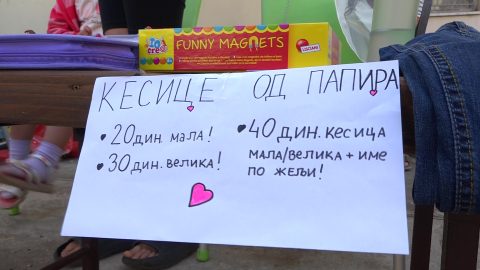 FUNNY MAGNETS
LISCIANI
КЕСИЦЕ ОД ПАПИРА
• 20 дин. мала!
• 30 дин. велика!
• 40 дин. кесица
мала/велика + име
по жељи!